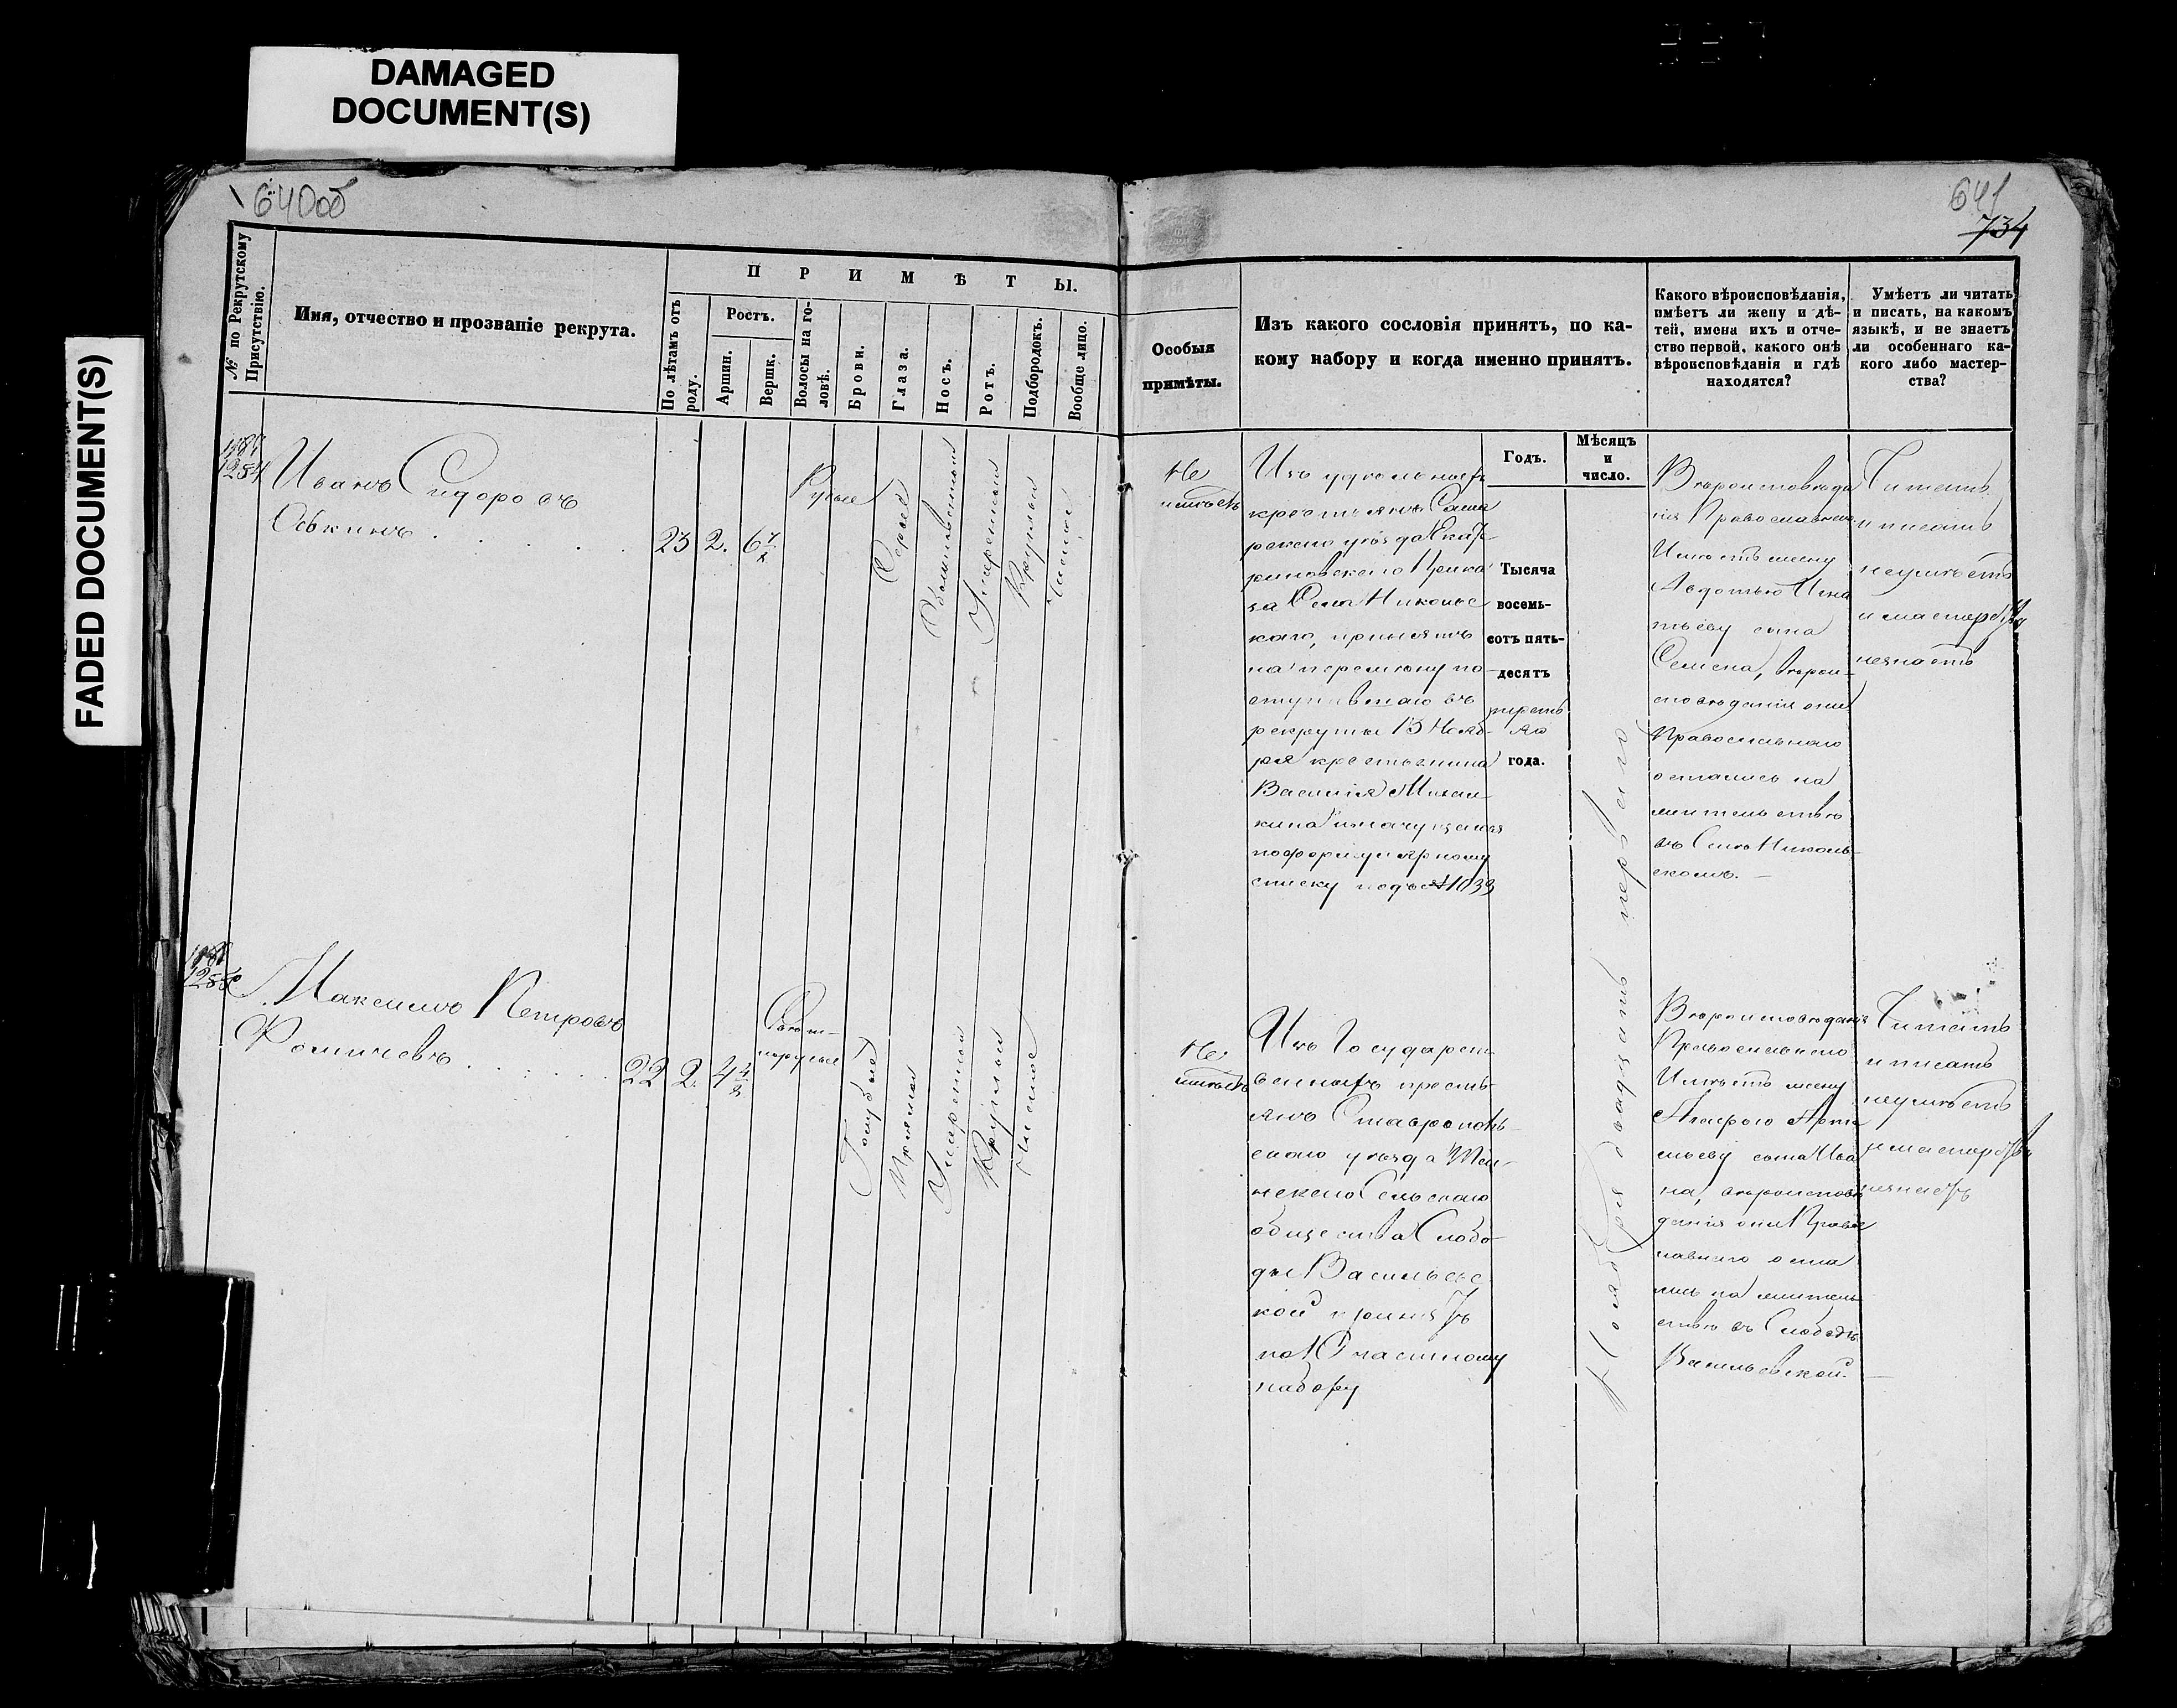 DAMAGED
DOCUMENT(S)
FADED DOCUMENT(S)
640об
641
734
№ по Рекрутскому
Присутствію.
Имя, отчество и прозваніе рекрута.
ПРИМѢТЫ.
По лѣтамъ отъ
роду.
Ростъ.
Аршин.
Вершк.
Волосы на го-
ловѣ.
Брови.
Глаза.
Носъ.
Ротъ.
Подбородокъ.
Вообще лицо.
Особыя
примѣты.
Изъ какого сословія принятъ, по ка-
кому набору и когда именно принятъ.
Какого вѣроисповѣданія,
имѣетъ ли жену и дѣ-
тей, имена ихъ и отче-
ство первой, какого онѣ
вѣроисповѣданія и гдѣ
находятся?
Умѣетъ ли читать
и писать, на какомъ
языкѣ, и не знаетъ
ли особеннаго ка-
кого либо мастер-
ства?
Годъ.
Мѣсяцъ
и
число.
1254
Иванъ Сидоровъ
Оськинъ
23 2. 6
Русые
Сѣрые
Умѣренный
Круглый
Чистое
Не
имѣетъ
Изъ удѣльныхъ
крестьянъ Сама
рскаго уѣзда Екате
риновскаго Прика
за Села Никольс
каго, принятъ
на перемѣну по
ступившаго въ
рекруты 13 Нояб-
ря крестьянина
Василія
по формулярному
списку подъ № 1039
Тысяча
восемь-
сотъ пять-
десятъ
третья
го
года.
Ноября двадцать перваго
Вѣроисповѣда
нія Православнаго
Имѣетъ жену
Авдотью Игна
тьеву сына
Семена, вѣрои-
сповѣданія они
Православнаго
остались на
жительствѣ
въ Селѣ Николь-
скомъ.
Читать
и писать
неумѣетъ
и мастерства
незнаетъ
1255
Максимъ Петровъ
Фомичевъ
22 2. 4
Свѣт-
лорусые
Голубые
Умѣренный
Круглый
Чистое
Не
имѣетъ
Изъ Государст-
венныхъ кресть
янъ Ставрополь-
скаго уѣзда
Сельскаго
общества Слобо-
ды Васильевс
кой принятъ
по 10 частному
набору
Вѣроисповѣданія
Православнаго
Имѣетъ жену
Арте
мьеву сына Ива
на, вѣроисповѣ
данія они Правос
лавнаго оста
лись на житель
ствѣ въ Слободѣ
Васильевской.
Читать
и писать
неумѣетъ
и мастерства
незнаетъ